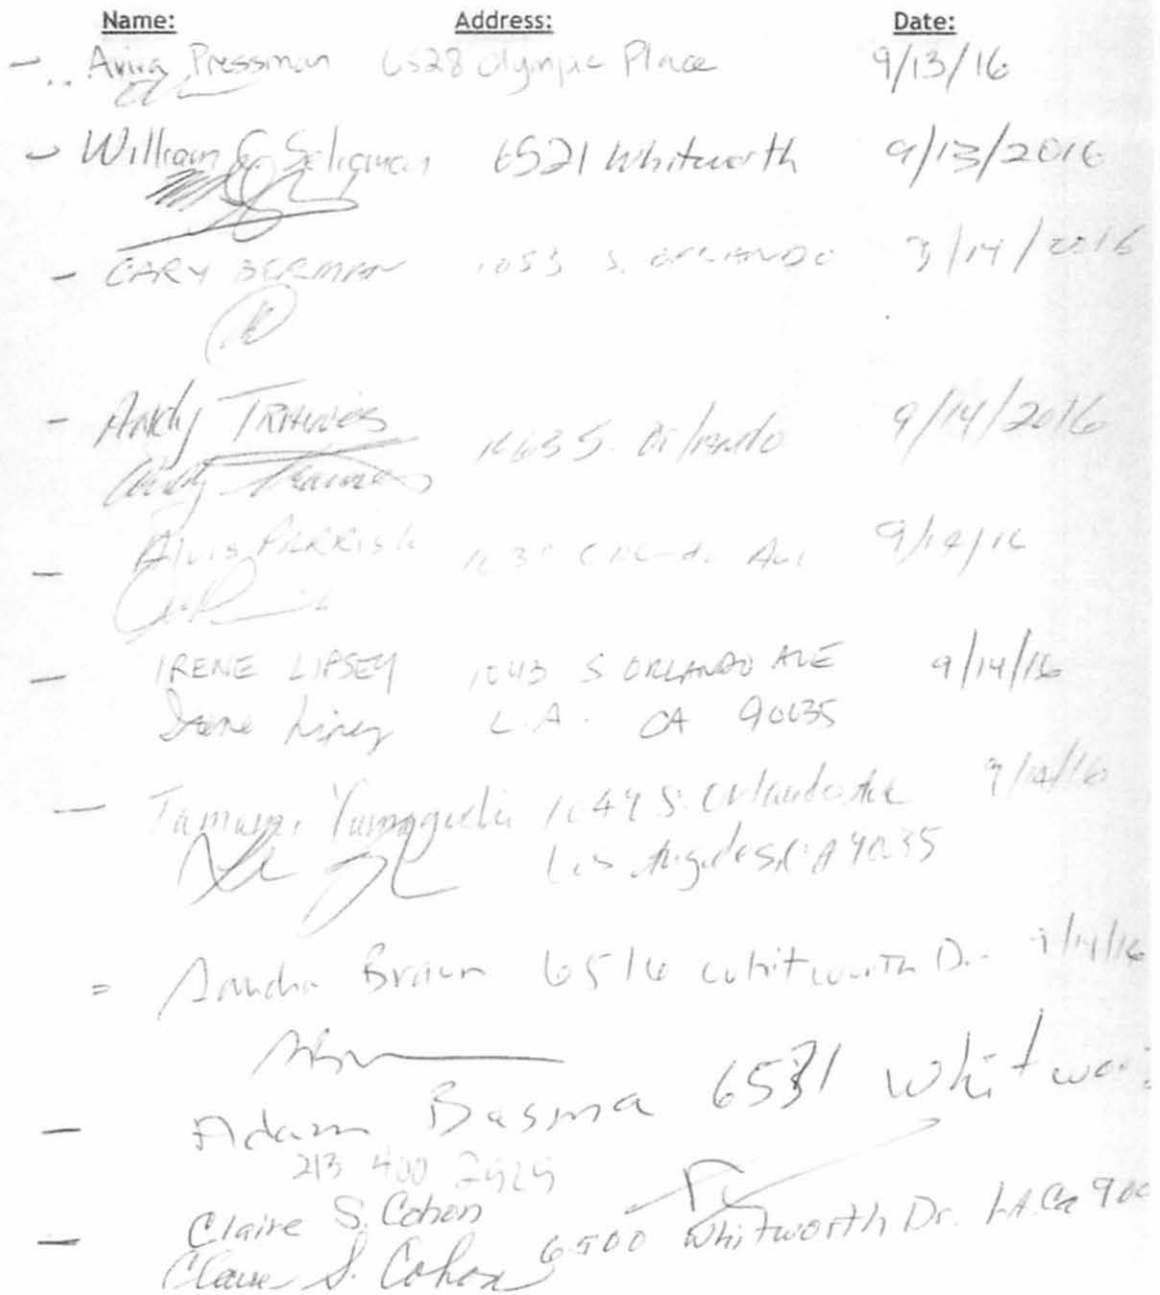 Name: Address: Date:
Aviva Pressman 6528 Olympic Place 9/13/16
William Seligman 6521 Whitworth 9/13/2016
GARY BERMAN 1053 S. ORLANDO 9/14/2016
Andy S. Orlando 9/14/2016
Alvis PARRISH 9/14/16
IRENE LIPSEY 1043 S ORLANDO AVE 9/14/16
Irene Lipsey L.A. CA 90035
Yamaguchi 1049 S. Orlando Ave 9/14/16
Los Angeles, CA 90035
Braun 6516 Whitworth Dr. 9/14/16
Adam Basma 6531 Whitwor
213 400 2929
Claire S. Cohon
Claire S. Cohon 6500 Whitworth Dr. LA. Ca 900